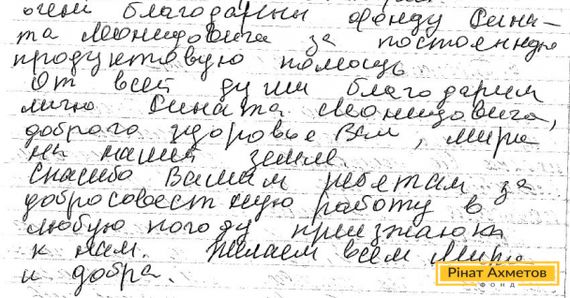 очень благодарны фонду Рина-
та Леонидовича за постоянную
продуктовую помощь
От всей души благодарим
лично Рината Леонидовича,
доброго здоровье Вам, мира
на нашей земле.
Спасибо Вашим ребятам за
добросовестную работу в
любую погоду приезжают
к нам. Желаем всем мира
и добра.
Рінат Ахметов
ФОНД